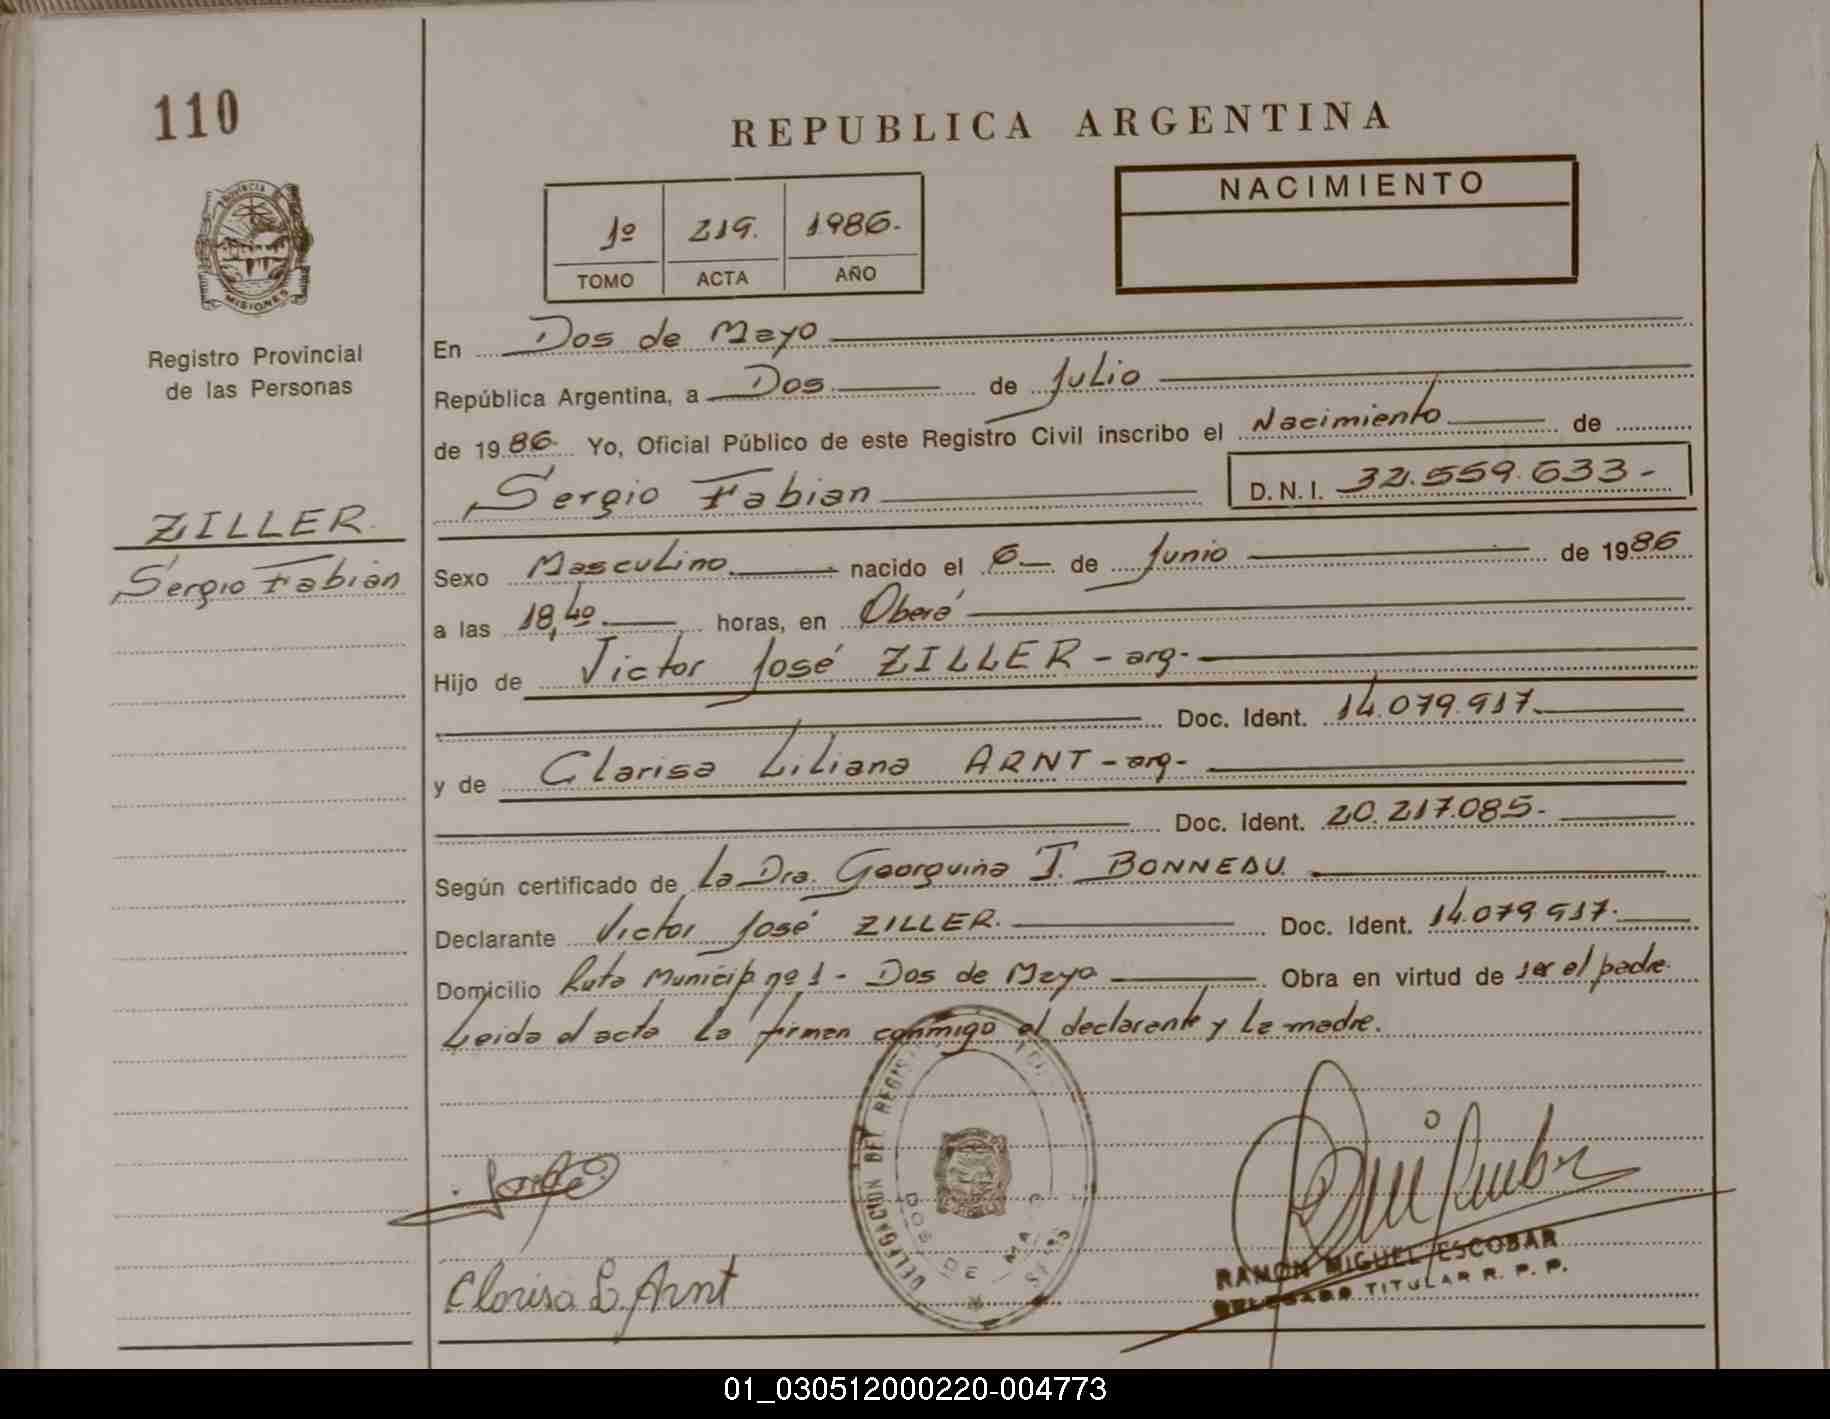 110
PROVINCIA
MISIONES
Registro Provincial
de las Personas
ZILLER
Sergio Fabian
REPUBLICA ARGENTINA
1º 219. 1986.
TOMO ACTA AÑO
NACIMIENTO
En Dos de Mayo
República Argentina, a Dos de Julio
de 1986. Yo, Oficial Público de este Registro Civil inscribo el Nacimiento de
Sergio Fabian D.N.I. 32.559.633-
Sexo Masculino nacido el 6 de Junio de 1986
a las 18,40 horas, en Oberá
Hijo de Victor José ZILLER - arg-
Doc. Ident. 14.079.917.
y de Clarisa Liliana ARNT - arg-
Doc. Ident. 20.217.085.-
Según certificado de La Dra. Georguina T. BONNEAU.
Declarante Victor José ZILLER. Doc. Ident. 14.079.917.
Domicilio Ruta Municip. nº 1 - Dos de Mayo Obra en virtud de ser el padre.
Leida el acta la firman conmigo el declarante y la madre.
DELEGACION DEL REGIST
DOS DE MAYO
Clarisa L. Arnt
RAMON MIGUEL ESCOBAR
DELEGADO TITULAR R. P. P.
01_030512000220-004773